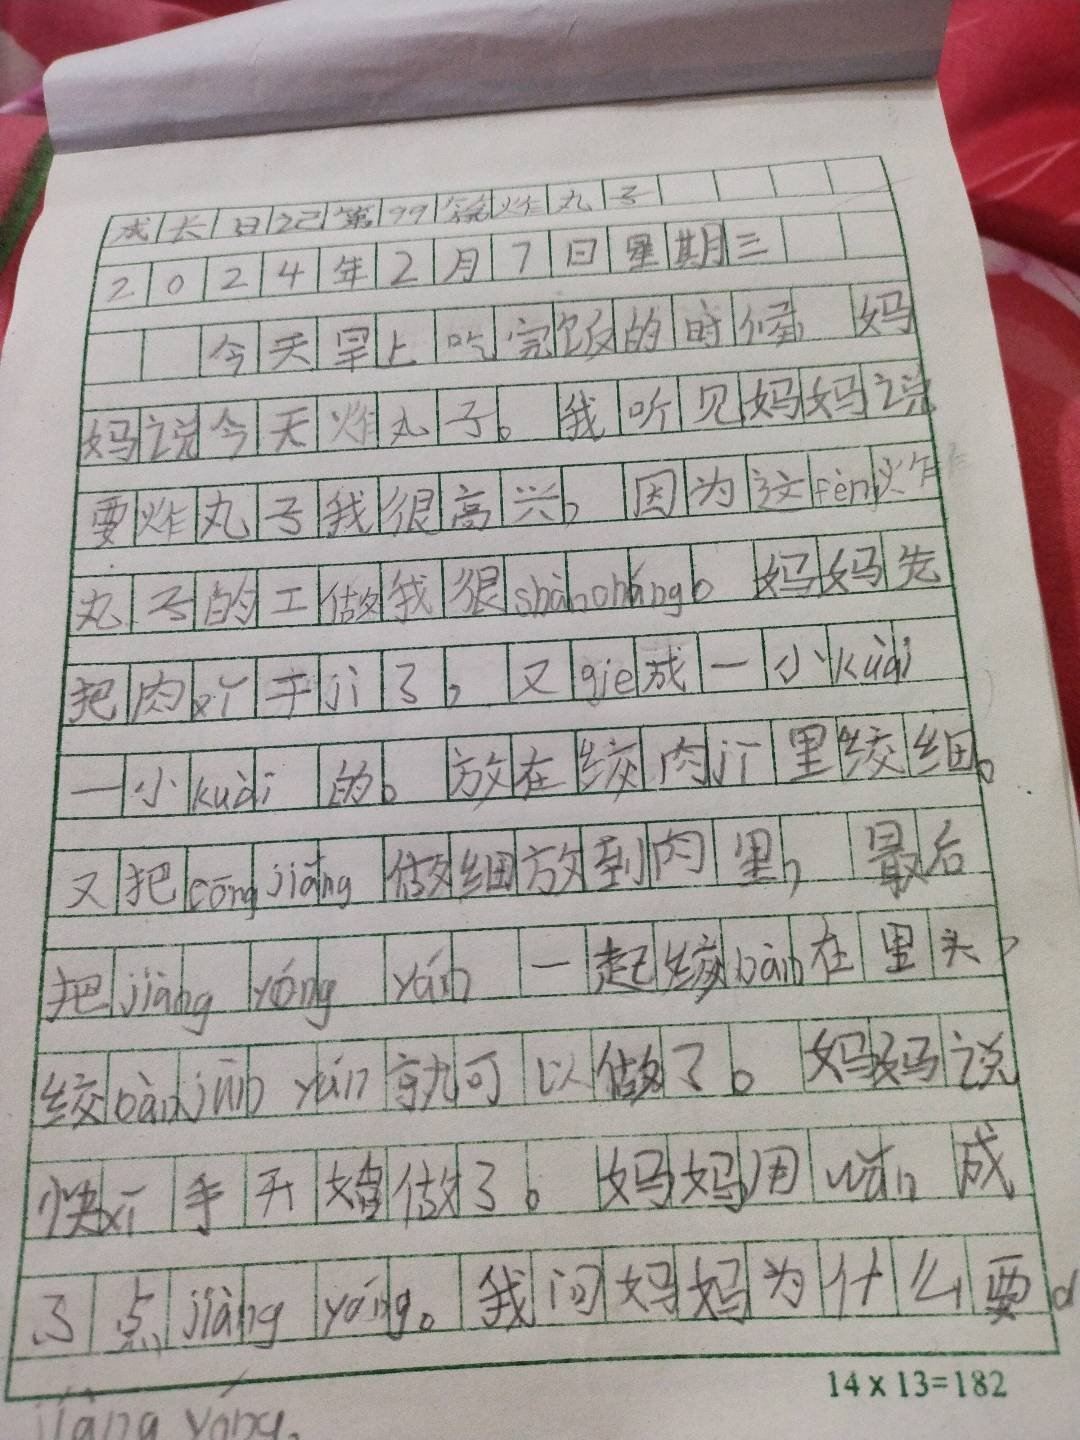 成长日记第99篇炸丸子
2024年2月7日星期三
今天早上吃完饭的时候，妈
妈说今天炸丸子。我听见妈妈说
要炸丸子我很高兴，因为这fèn炸
丸子的工做我很shàncháng。妈妈先
把肉xǐ干jì了，又qie成一小kuài
一小kuài的。放在绞肉jī里绞细。
又把cōngjiāng做细放到肉里，最后
把jiàng yóng yán一起绞bàn在里头，
绞bànjūn yún就可以做了。妈妈说
快xǐ手开始做了。妈妈用wǎn成
了点jiàng yóng。我问妈妈为什么要d
jiàng yóng.
14 x 13=182